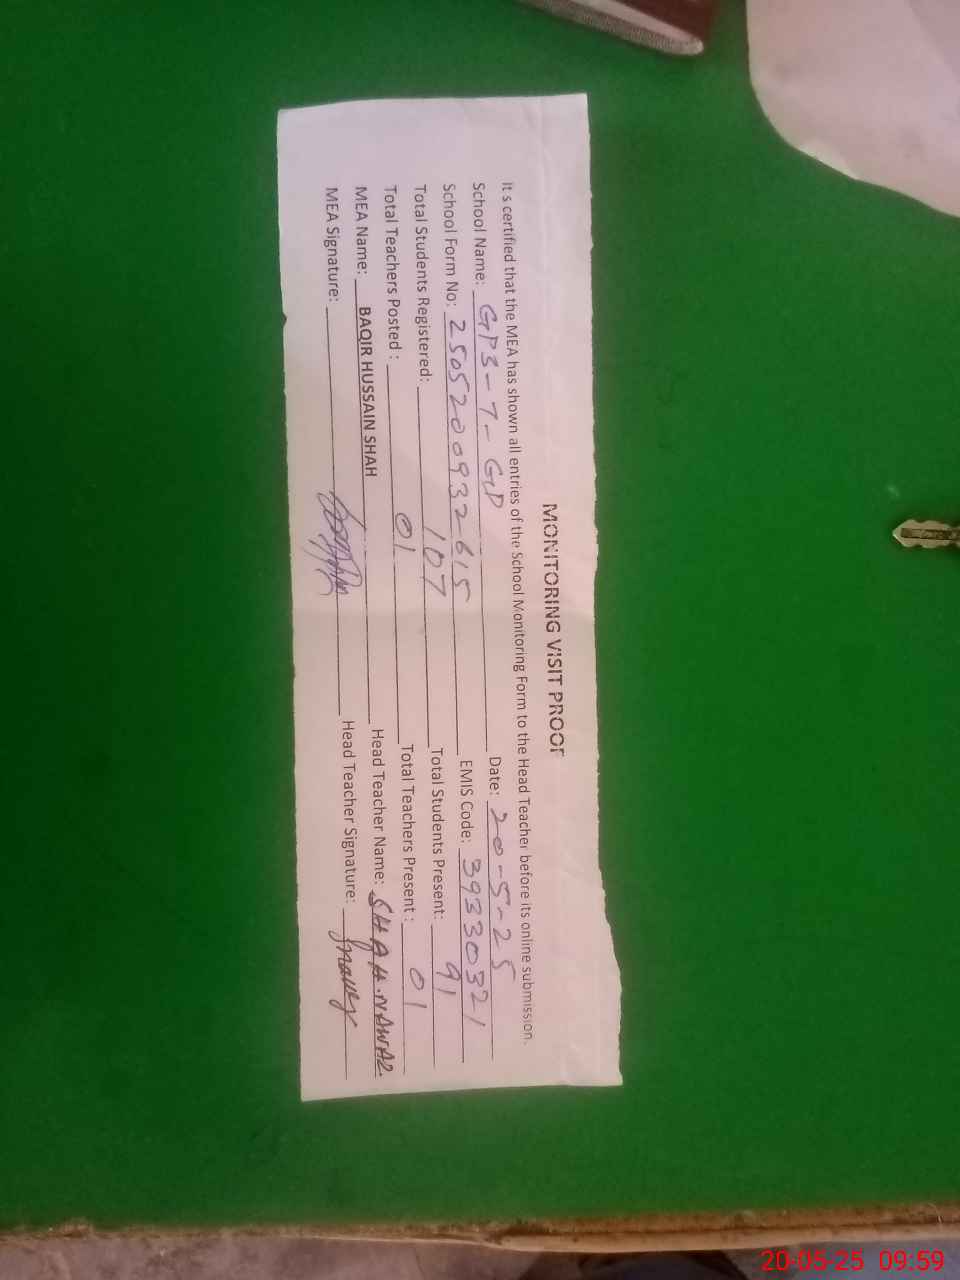 MONITORING VISIT PROOF
It s certified that the MEA has shown all entries of the School Monitoring Form to the Head Teacher before its online submission.
School Name: GPS-7-GD Date: 20-5-25
School Form No: 2505200932615 EMIS Code: 39330321
Total Students Registered: 107 Total Students Present: 91
Total Teachers Posted : 01 Total Teachers Present : 01
MEA Name: BAQIR HUSSAIN SHAH Head Teacher Name: SHAH.NAWAZ.
MEA Signature: Head Teacher Signature:
20-05-25 09:59